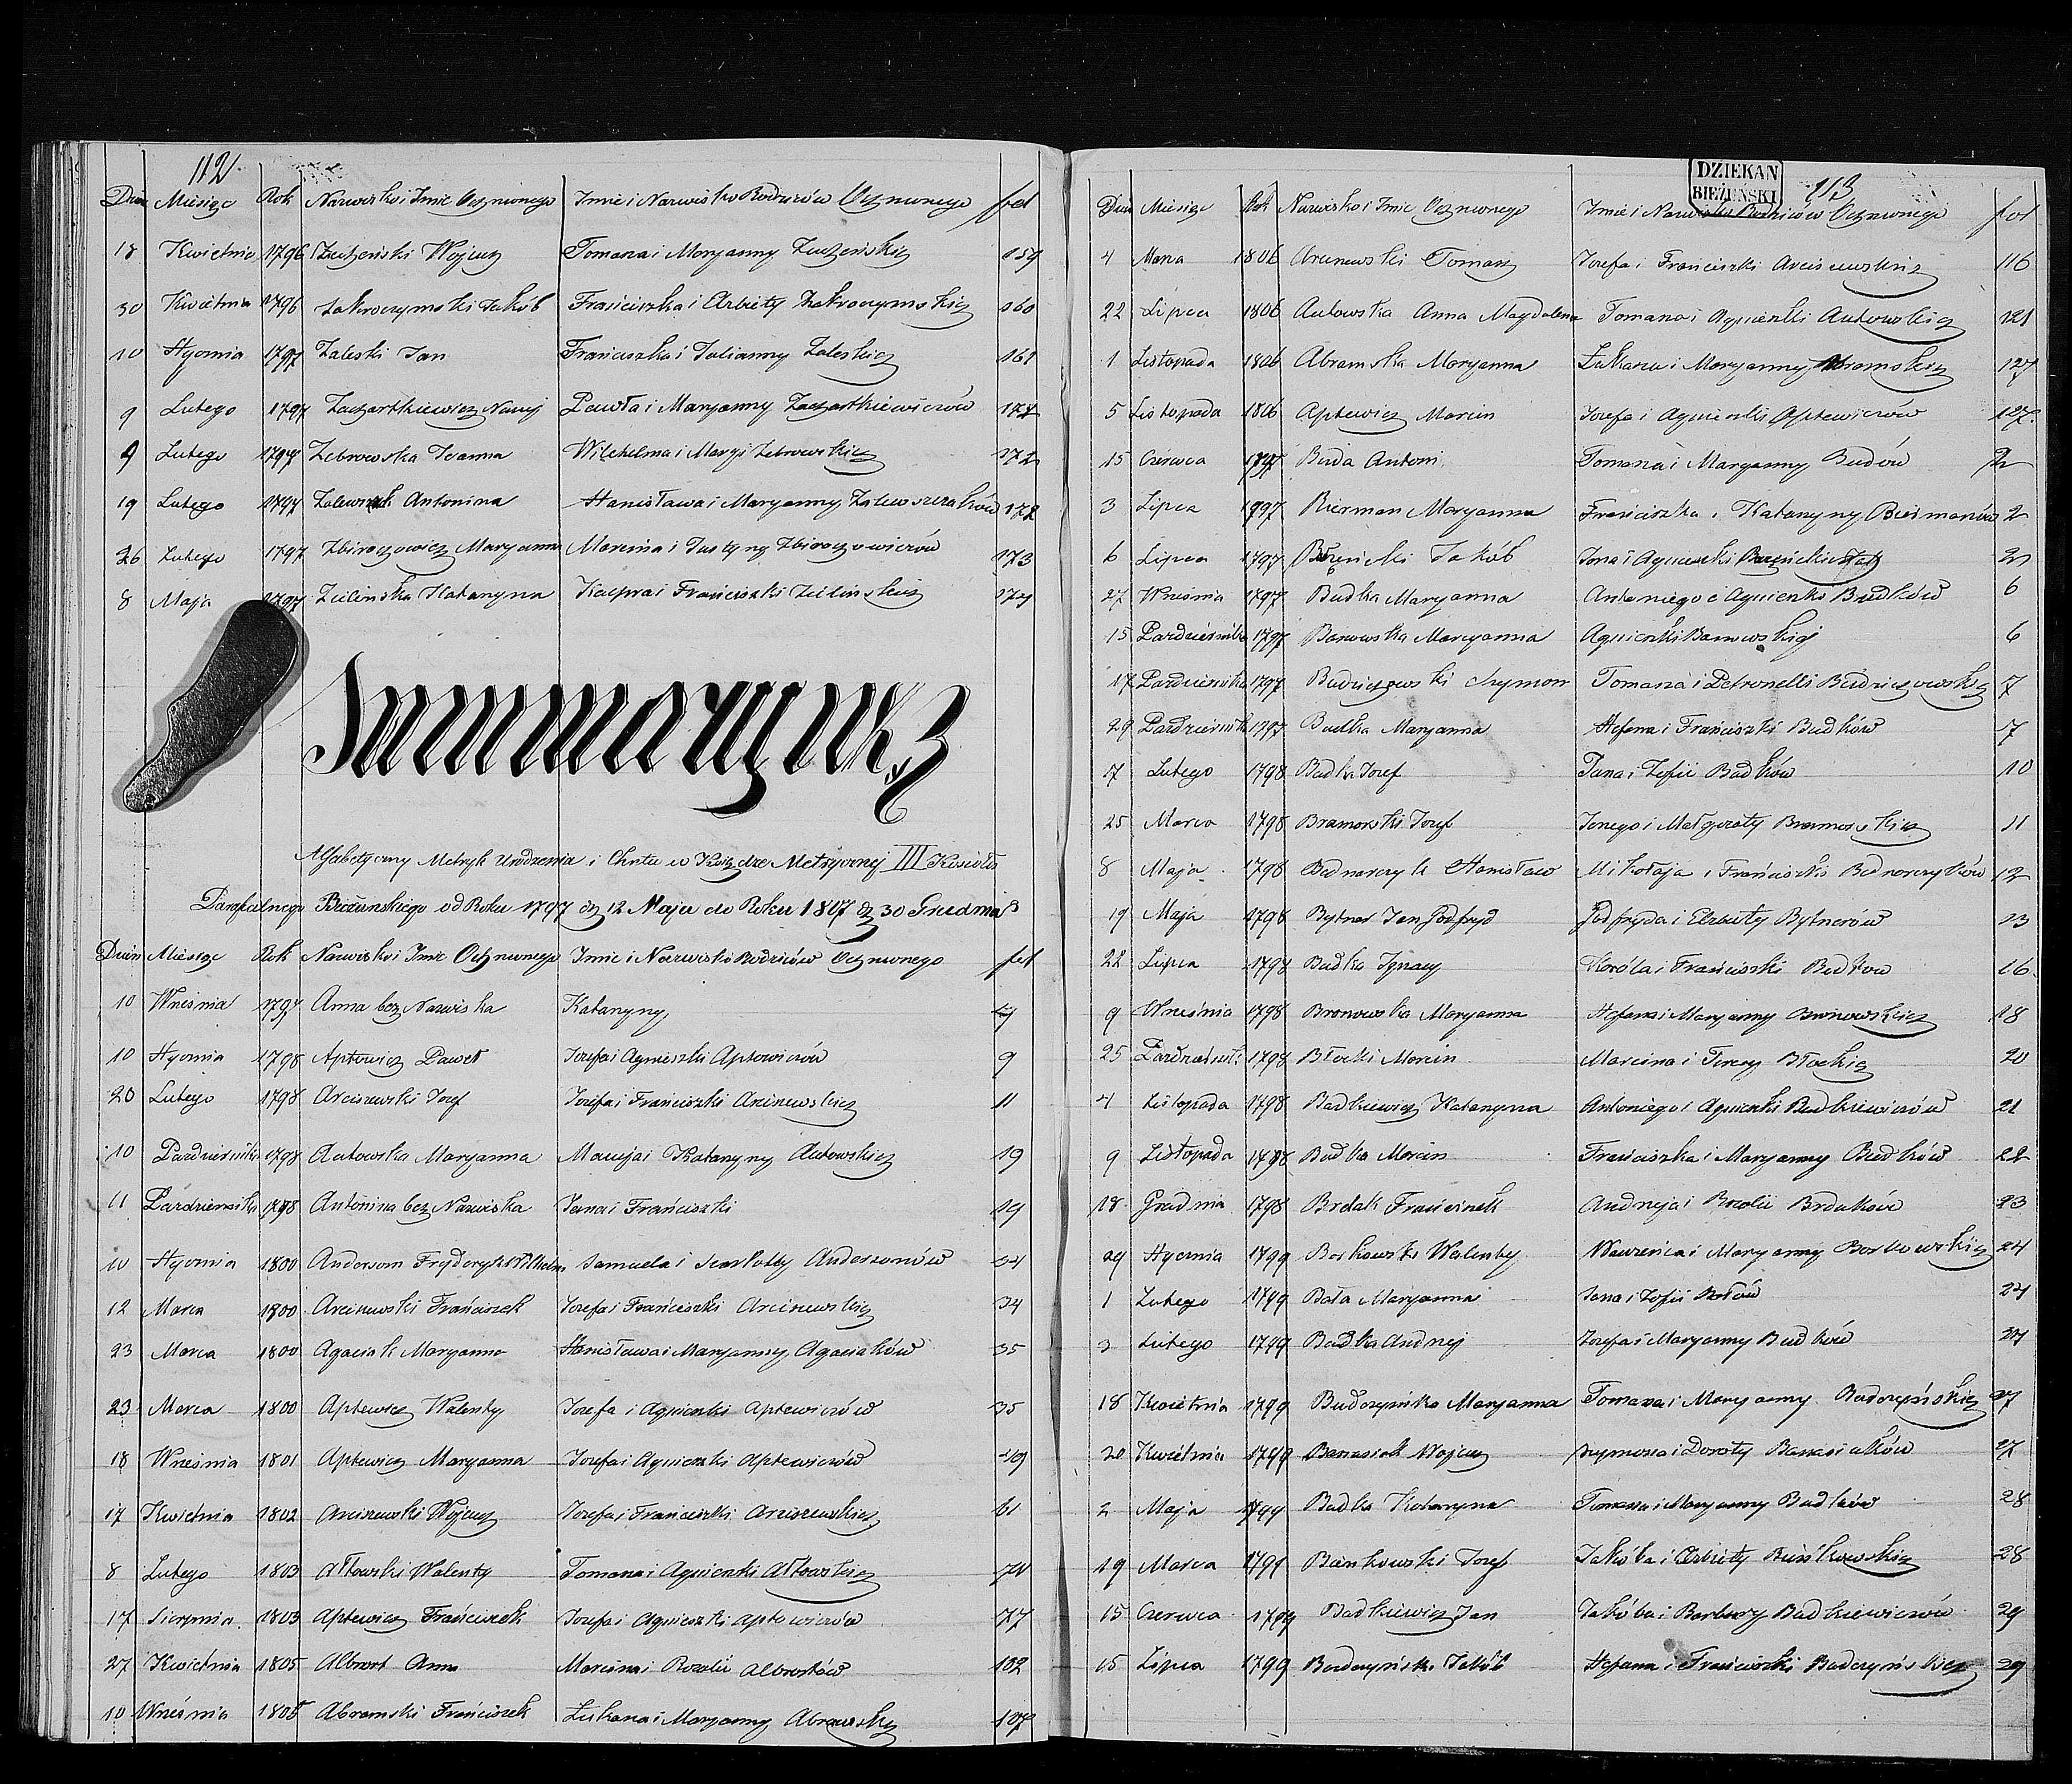 112
Dzień Miesiąc Rok Nazwisko i Imie Ochrzczonego Imie i Nazwisko Rodziców Ochrzczonego fol
18 Kwietnia 1796 Wojciech Tomasza i Maryanny 159
30 Kwietnia 1796 Zakroczymski Jakób Franciszka i Elżbiety Zakroczymskich 160
10 Stycznia 1797 Zaleski Jan Franciszka i Julianny Zaleskich 161
9 Lutego 1797 Pawła i Maryanny
9 Lutego 1797 Zebrowska Joanna Wilchelma i Maryi Zebrowskich 172
19 Lutego 1797 Antonina Stanisława i Maryanny 172
26 Lutego 1797 Maryanna Marcina i Justyny 173
8 Maja 1797 Zielinska Katarzyna Kacpra i Franciszki Zielinskich
Summaryusz
Alfabetyczny Metryk Urodzenia i Chrztu w Księdze Metrycznej III Kościoła
Parafialnego Bieżunskiego od Roku 1797 d. 12 Maja do Roku 1807 d. 30 Grudnia
Dzień Miesiąc Rok Nazwisko i Imie Ochrzczonego Imie i Nazwisko Rodziców Ochrzczonego fol
10 Września 1797 Anna bez Nazwiska Katarzyny
10 Stycznia 1798 Aptewicz Paweł Jozefa i Agnieszki Aptewiczów 9
20 Lutego 1798 Arciszewski Jozef Jozefa i Franciszki Arciszewskich 11
10 Pazdziernika 1798 Autowska Maryanna Macieja i Katarzyny Autowskich 19
11 Pazdziernika 1798 Antonina bez Nazwiska Jana i Franciszki 19
10 Stycznia 1800 Anderson Fryderyk Wilhelm Samuela i Szarlotty Andersonów 34
12 Marca 1800 Arciszewski Franciszek Jozefa i Franciszki Arciszewskich 34
23 Marca 1800 Agaciak Maryanna Stanisława i Maryanny Agaciaków 35
23 Marca 1800 Aptewicz Walenty Jozefa i Agnieszki Aptewiczów 35
18 Września 1801 Aptewicz Maryanna Jozefa i Agnieszki Aptewiczów 49
17 Kwietnia 1802 Arciszewski Wojciech Jozefa i Franciszki Arciszewskich 61
8 Lutego 1803 Ałtowski Walenty Tomasza i Agnieszki Ałtowskich
17 Sierpnia 1803 Aptewicz Franciszek Jozefa i Agnieszki Aptewiczów 77
27 Kwietnia 1805 Albrort Anna Marcina i Rozalii Albrortów 102
10 Września 1805 Abramski Franciszek Łukasza i Maryanny Abramskich 107
DZIEKAN
BIEŻUŃSKI
113
Dzień Miesiąc Rok Nazwisko i Imie Ochrzczonego Imie i Nazwisko Rodziców Ochrzczonego fol
4 Marca 1806 Arciszewski Tomasz Jozefa i Franciszki Arciszewskich 116
22 Lipca 1806 Autowska Anna Magdalena Tomasza i Agnieszki Autowskich 121
1 Listopada 1806 Abramska Maryanna Łukasza i Maryanny Abramskich 127
5 Listopada 1806 Aptewicz Marcin Jozefa i Agnieszki Aptewiczów 127
15 Czerwca 1797 Buda Antoni Tomasza i Maryanny Budów 2
3 Lipca 1797 Bierman Maryanna Franciszka i Katarzyny Biermanów 2
6 Lipca 1797 Jakób Jana i Agnieszki
27 Września 1797 Budka Maryanna Antoniego i Agnieszki Budków 6
15 Pazdziernika 1797 Banowska Maryanna Agnieszki Banowskiej 6
17 Pazdziernika 1797 Szymon Tomasza i Petronelli 7
29 Pazdziernika 1797 Budka Maryanna Stefana i Franciszki Budków 7
17 Lutego 1798 Budka Jozef Jana i Zofii Budków 10
25 Marca 1798 Bramorski Jozef Małgorzaty 11
8 Maja 1798 Bednarczyk Stanisław Mikołaja i Franciszki Bednarczyków 12
19 Maja 1798 Bytner Jan Godfryd Godfryda i Elżbiety Bytnerów 13
22 Lipca 1798 Budka Ignacy Karóla i Franciszki Budków 16
9 Września 1798 Bronowska Maryanna Stefana i Maryanny Bronowskich 18
25 Pazdziernik: 1798 Błocki Marcin Marcina i Teresy Błockich 20
4 Listopada 1798 Budkiewicz Katarzyna Antoniego i Agnieszki Budkiewiczów 21
9 Listopada 1798 Budka Marcin Franciszka i Maryanny Budków 22
18 Grudnia 1798 Brdak Franciszek Andrzeja i Rozalii Brdaków 23
29 Stycznia 1799 Borkowski Walenty Wawrzeńca i Maryanny Borkowskich 24
1 Lutego 1799 Bała Maryanna Jana i Zofii Bałów 24
3 Lutego 1799 Budka Andrzej Jozefa i Maryanny Budków 24
18 Kwietnia 1799 Budczyńska Maryanna Tomasza i Maryanny Budczyńskich 27
20 Kwietnia 1799 Banasiak Wojciech Szymona i Doroty Banasiaków 27
2 Maja 1799 Budka Katarzyna Tomasza i Maryanny Budków 28
19 Marca 1799 Jozef Jakóba i Elżbiety 28
15 Czerwca 1799 Budkiewicz Jan Jakóba i Barbary Budkiewiczów 29
15 Lipca 1799 Budczyński Jakób Stefana i Franciszki Budczyńskich 29